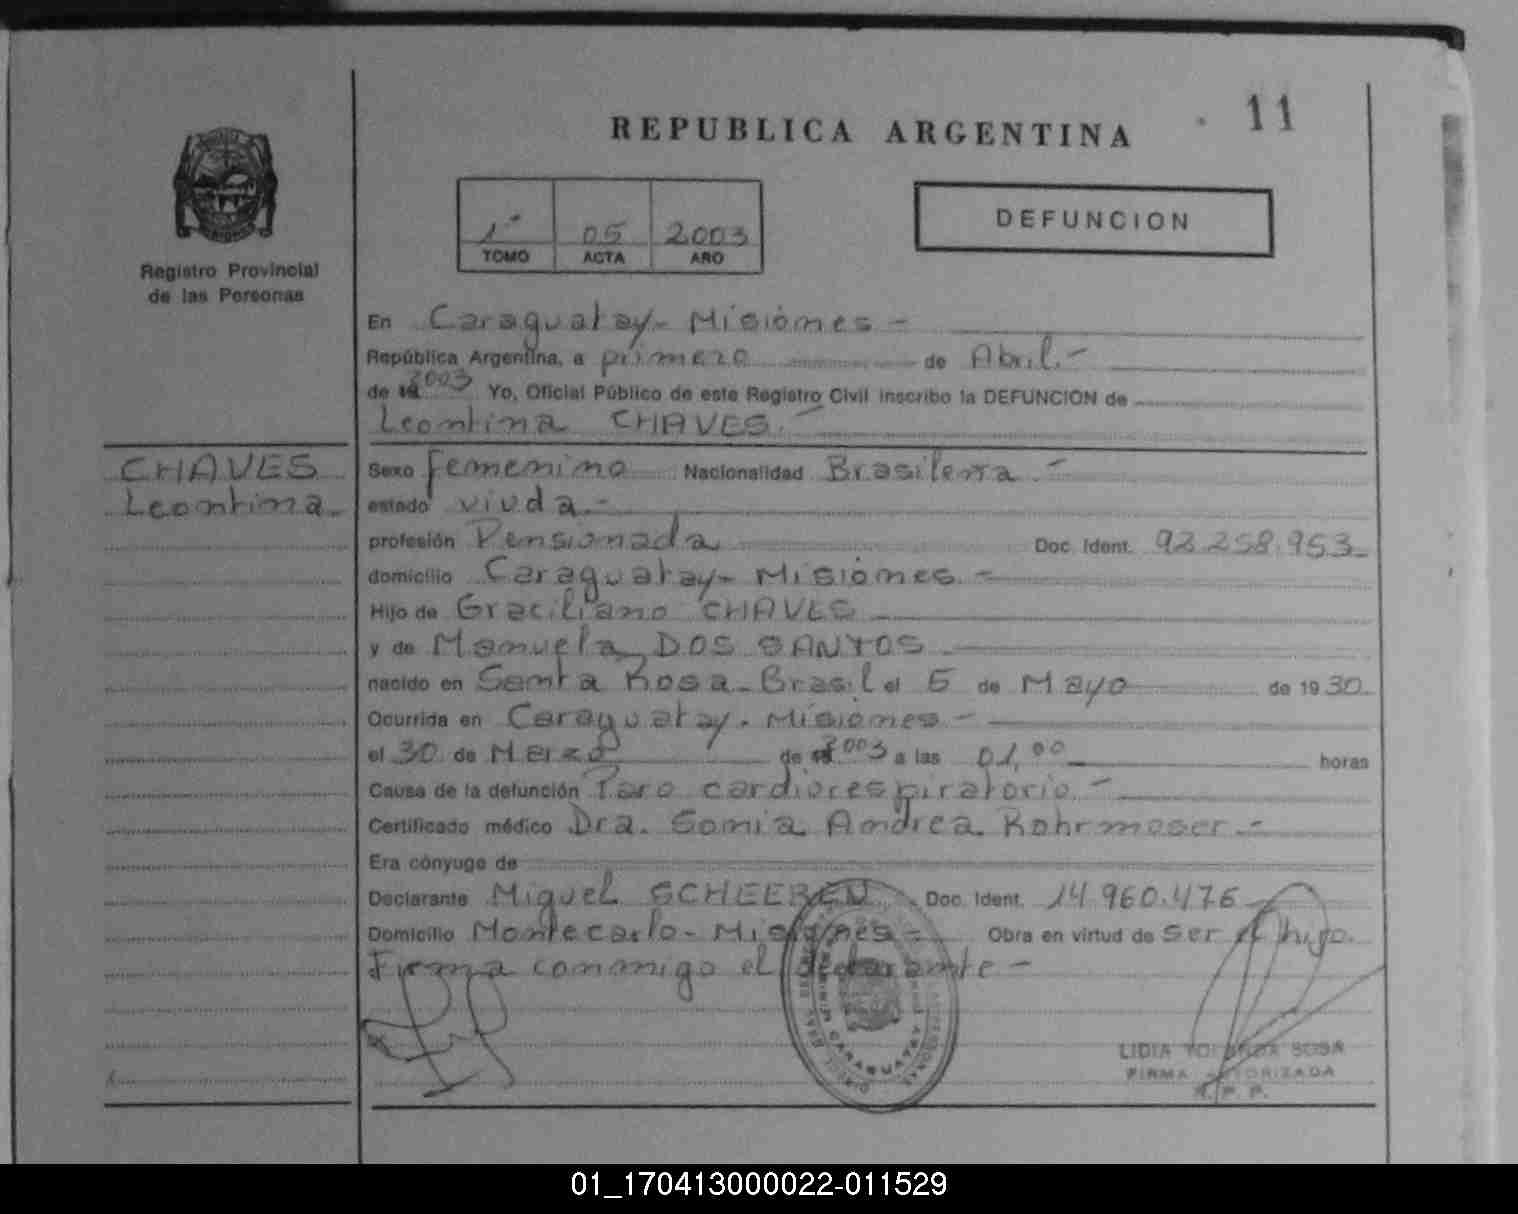 11
REPUBLICA ARGENTINA
DEFUNCION
1º 05 2003
TOMO ACTA AÑO
Registro Provincial
de las Personas
En Caraguatay - Misiones -
República Argentina, a primero de Abril.-
de 19 2003 Yo, Oficial Público de este Registro Civil inscribo la DEFUNCION de
Leontina CHAVES.-
CHAVES
Leontina.-
Sexo femenino Nacionalidad Brasilera.-
estado viuda.-
profesión Pensionada Doc. Ident. 92.258.953-
domicilio Caraguatay - Misiones.-
Hijo de Graciliano CHAVES
y de Manuela DOS SANTOS
nacido en Santa Rosa - Brasil el 5 de Mayo de 1930.
Ocurrida en Caraguatay - Misiones -
el 30 de Marzo de 2003 a las 01,00 horas
Causa de la defunción Paro cardiorespiratorio.-
Certificado médico Dra. Sonia Andrea Rohrmoser.-
Era cónyuge de
Declarante Miguel SCHEEREN Doc. Ident. 14.960.476-
Domicilio Montecarlo - Misiones - Obra en virtud de ser el hijo.
Firma conmigo el declarante -
CARAGUATAY
LIDIA YOLANDA SOSA
FIRMA AUTORIZADA
R. P. P.
01_170413000022-011529